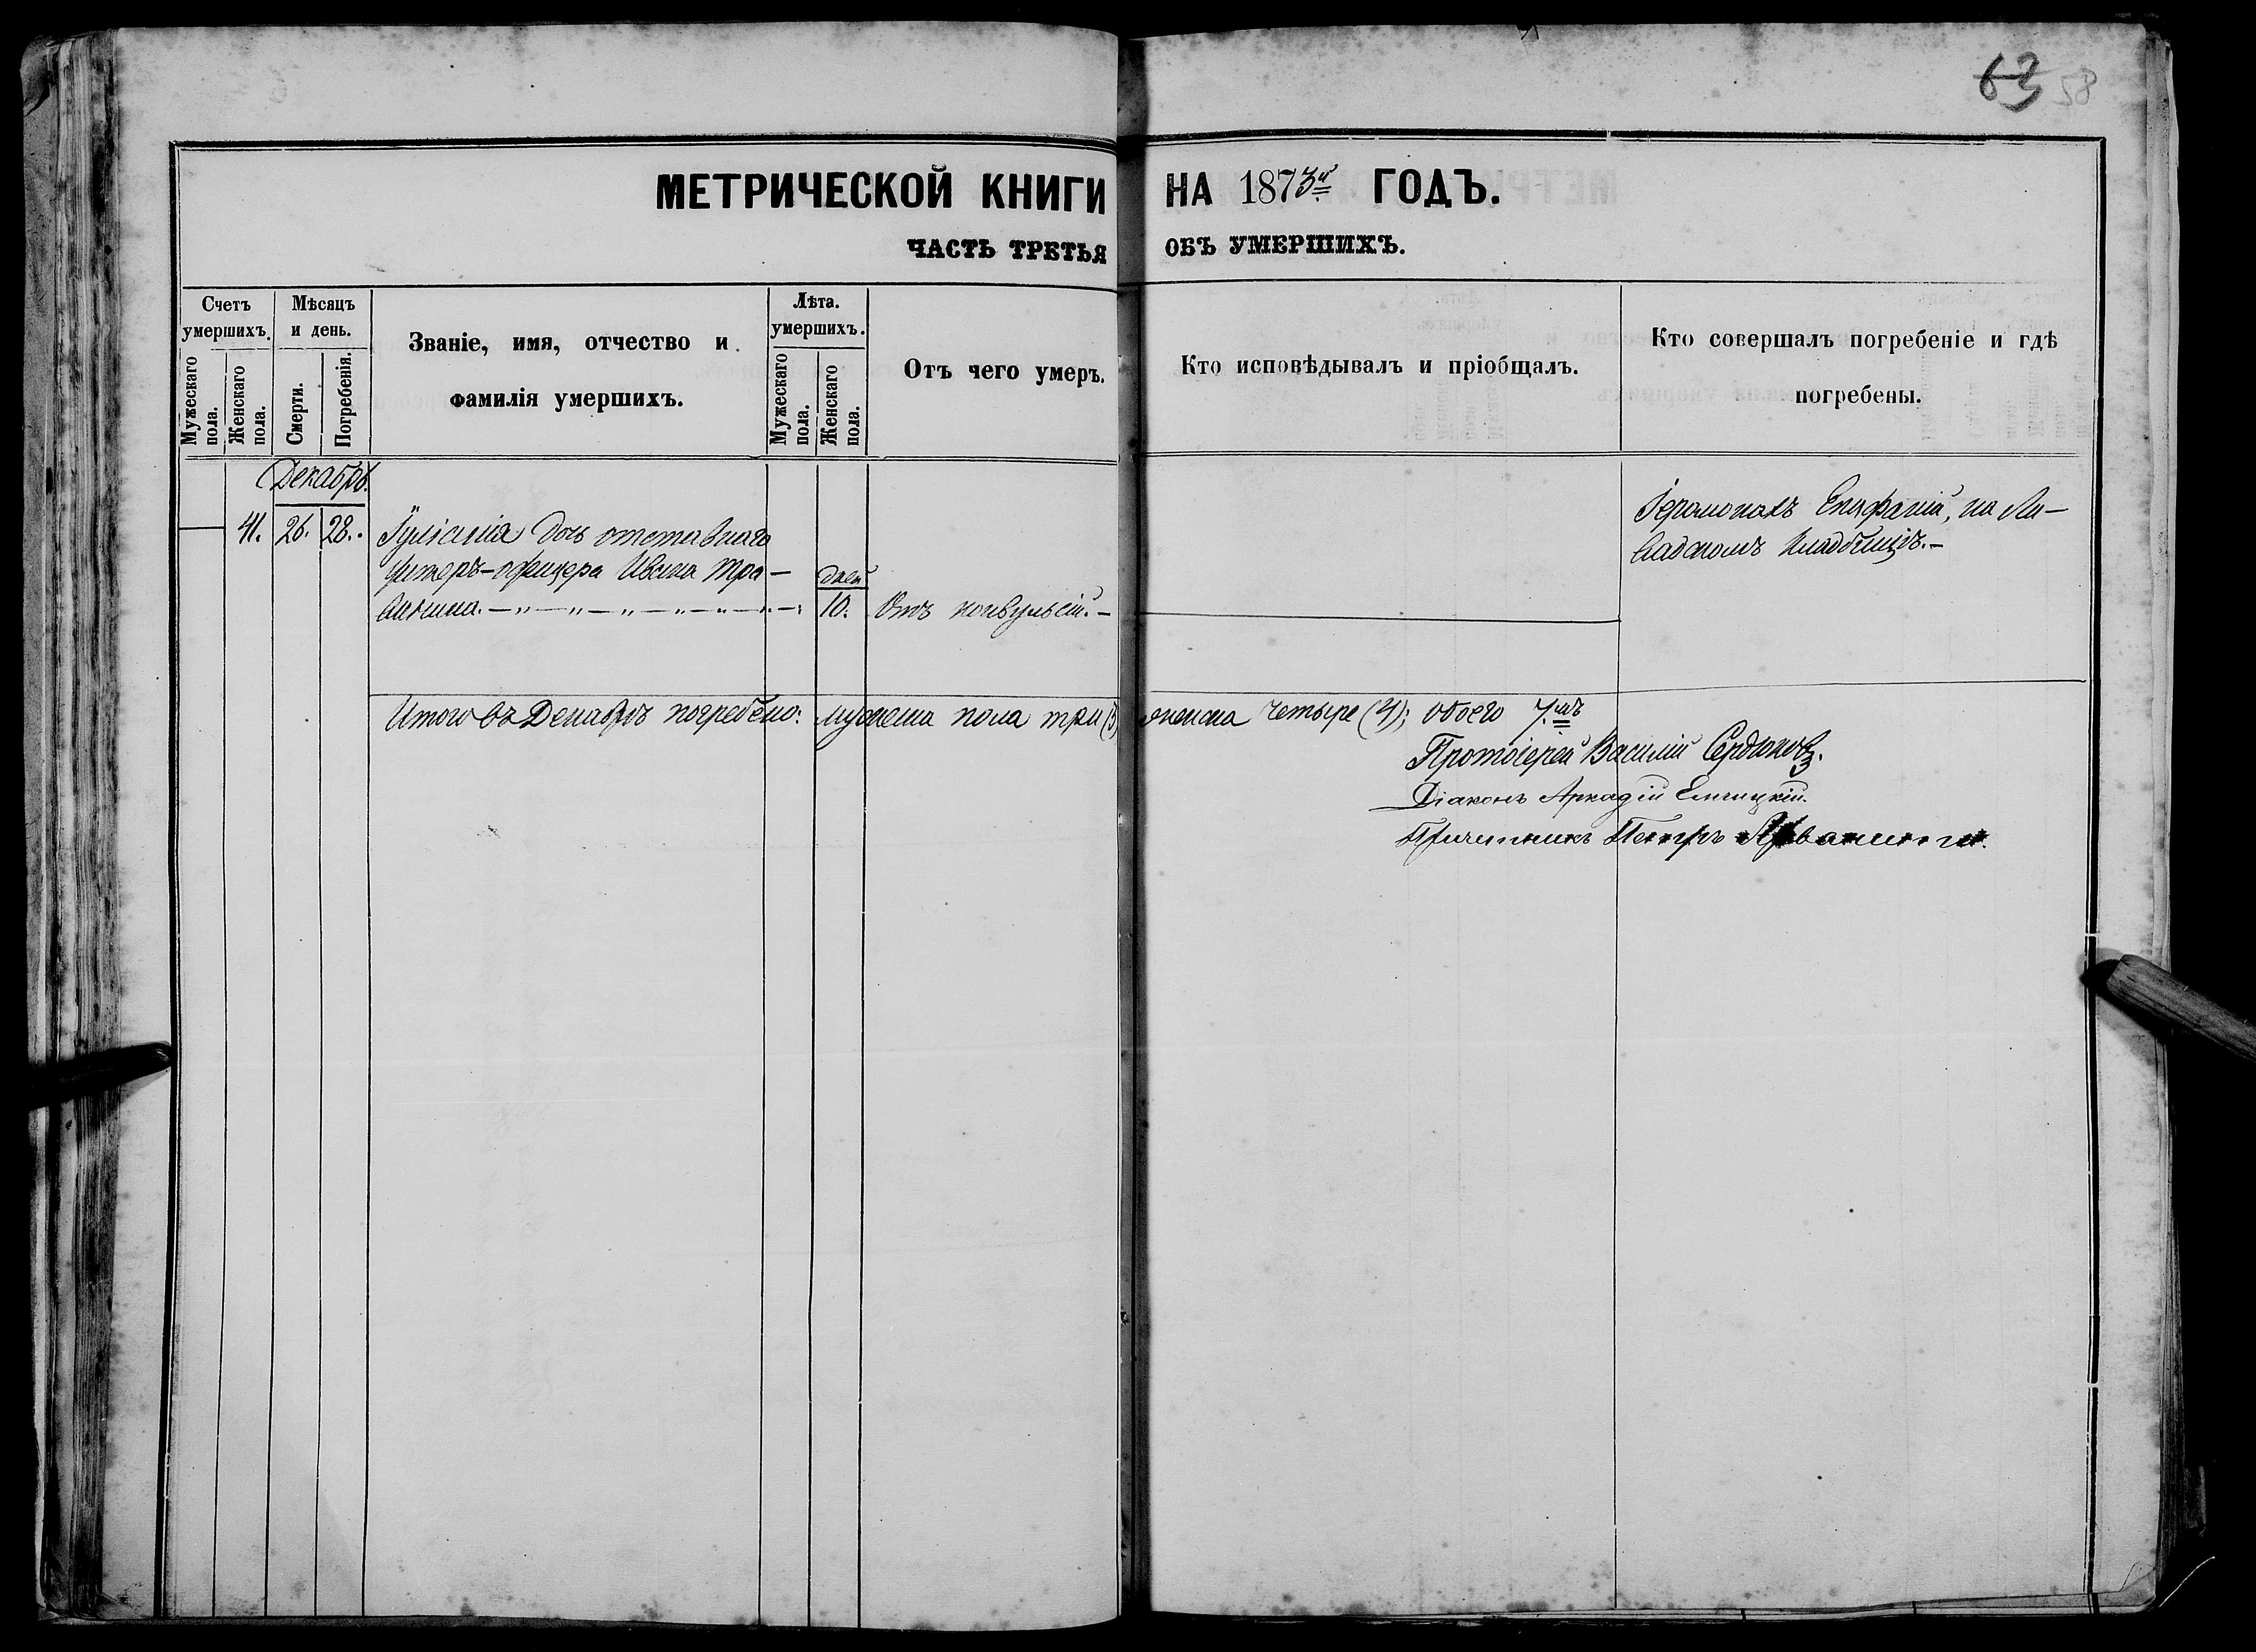 63 58
МЕТРИЧЕСКОЙ КНИГИ НА 1873й ГОДЪ.
ЧАСТЬ ТРЕТЬЯ ОБЪ УМЕРШИХЪ.
Счетъ умершихъ.
Мужескаго пола.
Женскаго пола.
Мѣсяцъ и день.
Смерти.
Погребенія.
Званіе, имя, отчество и
фамилія умершихъ.
Лѣта. умершихъ.
Мужескаго пола.
Женскаго пола.
Отъ чего умеръ.
Кто исповѣдывалъ и пріобщалъ.
Кто совершалъ погребеніе и гдѣ
погребены.
Декабрь.
41. 26. 28. Іуліанія дочь отставнаго
унтеръ-офицера Ивана
дней
10. Отъ конвульсій.-
Іеромонахъ Епифаній, на Ли-
вадскомъ кладбищѣ.-
Итого въ Декабрѣ погребено: мужеска пола три (3) женска четыре (4); обоего 7.мъ
Протоіерей Василій Сердюковъ.
Діаконъ Аркадій
Причетникъ Петръ